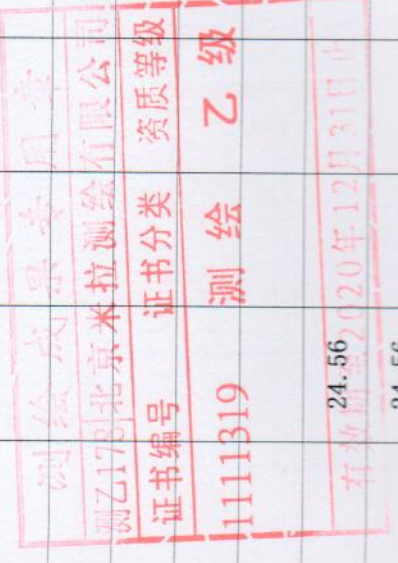 测绘成果专用章
测乙178北京米拉测绘有限公司
证书编号 证书分类 资质等级
1111319 测绘 乙级
有效期至2020年12月31日止
24.56
24.56